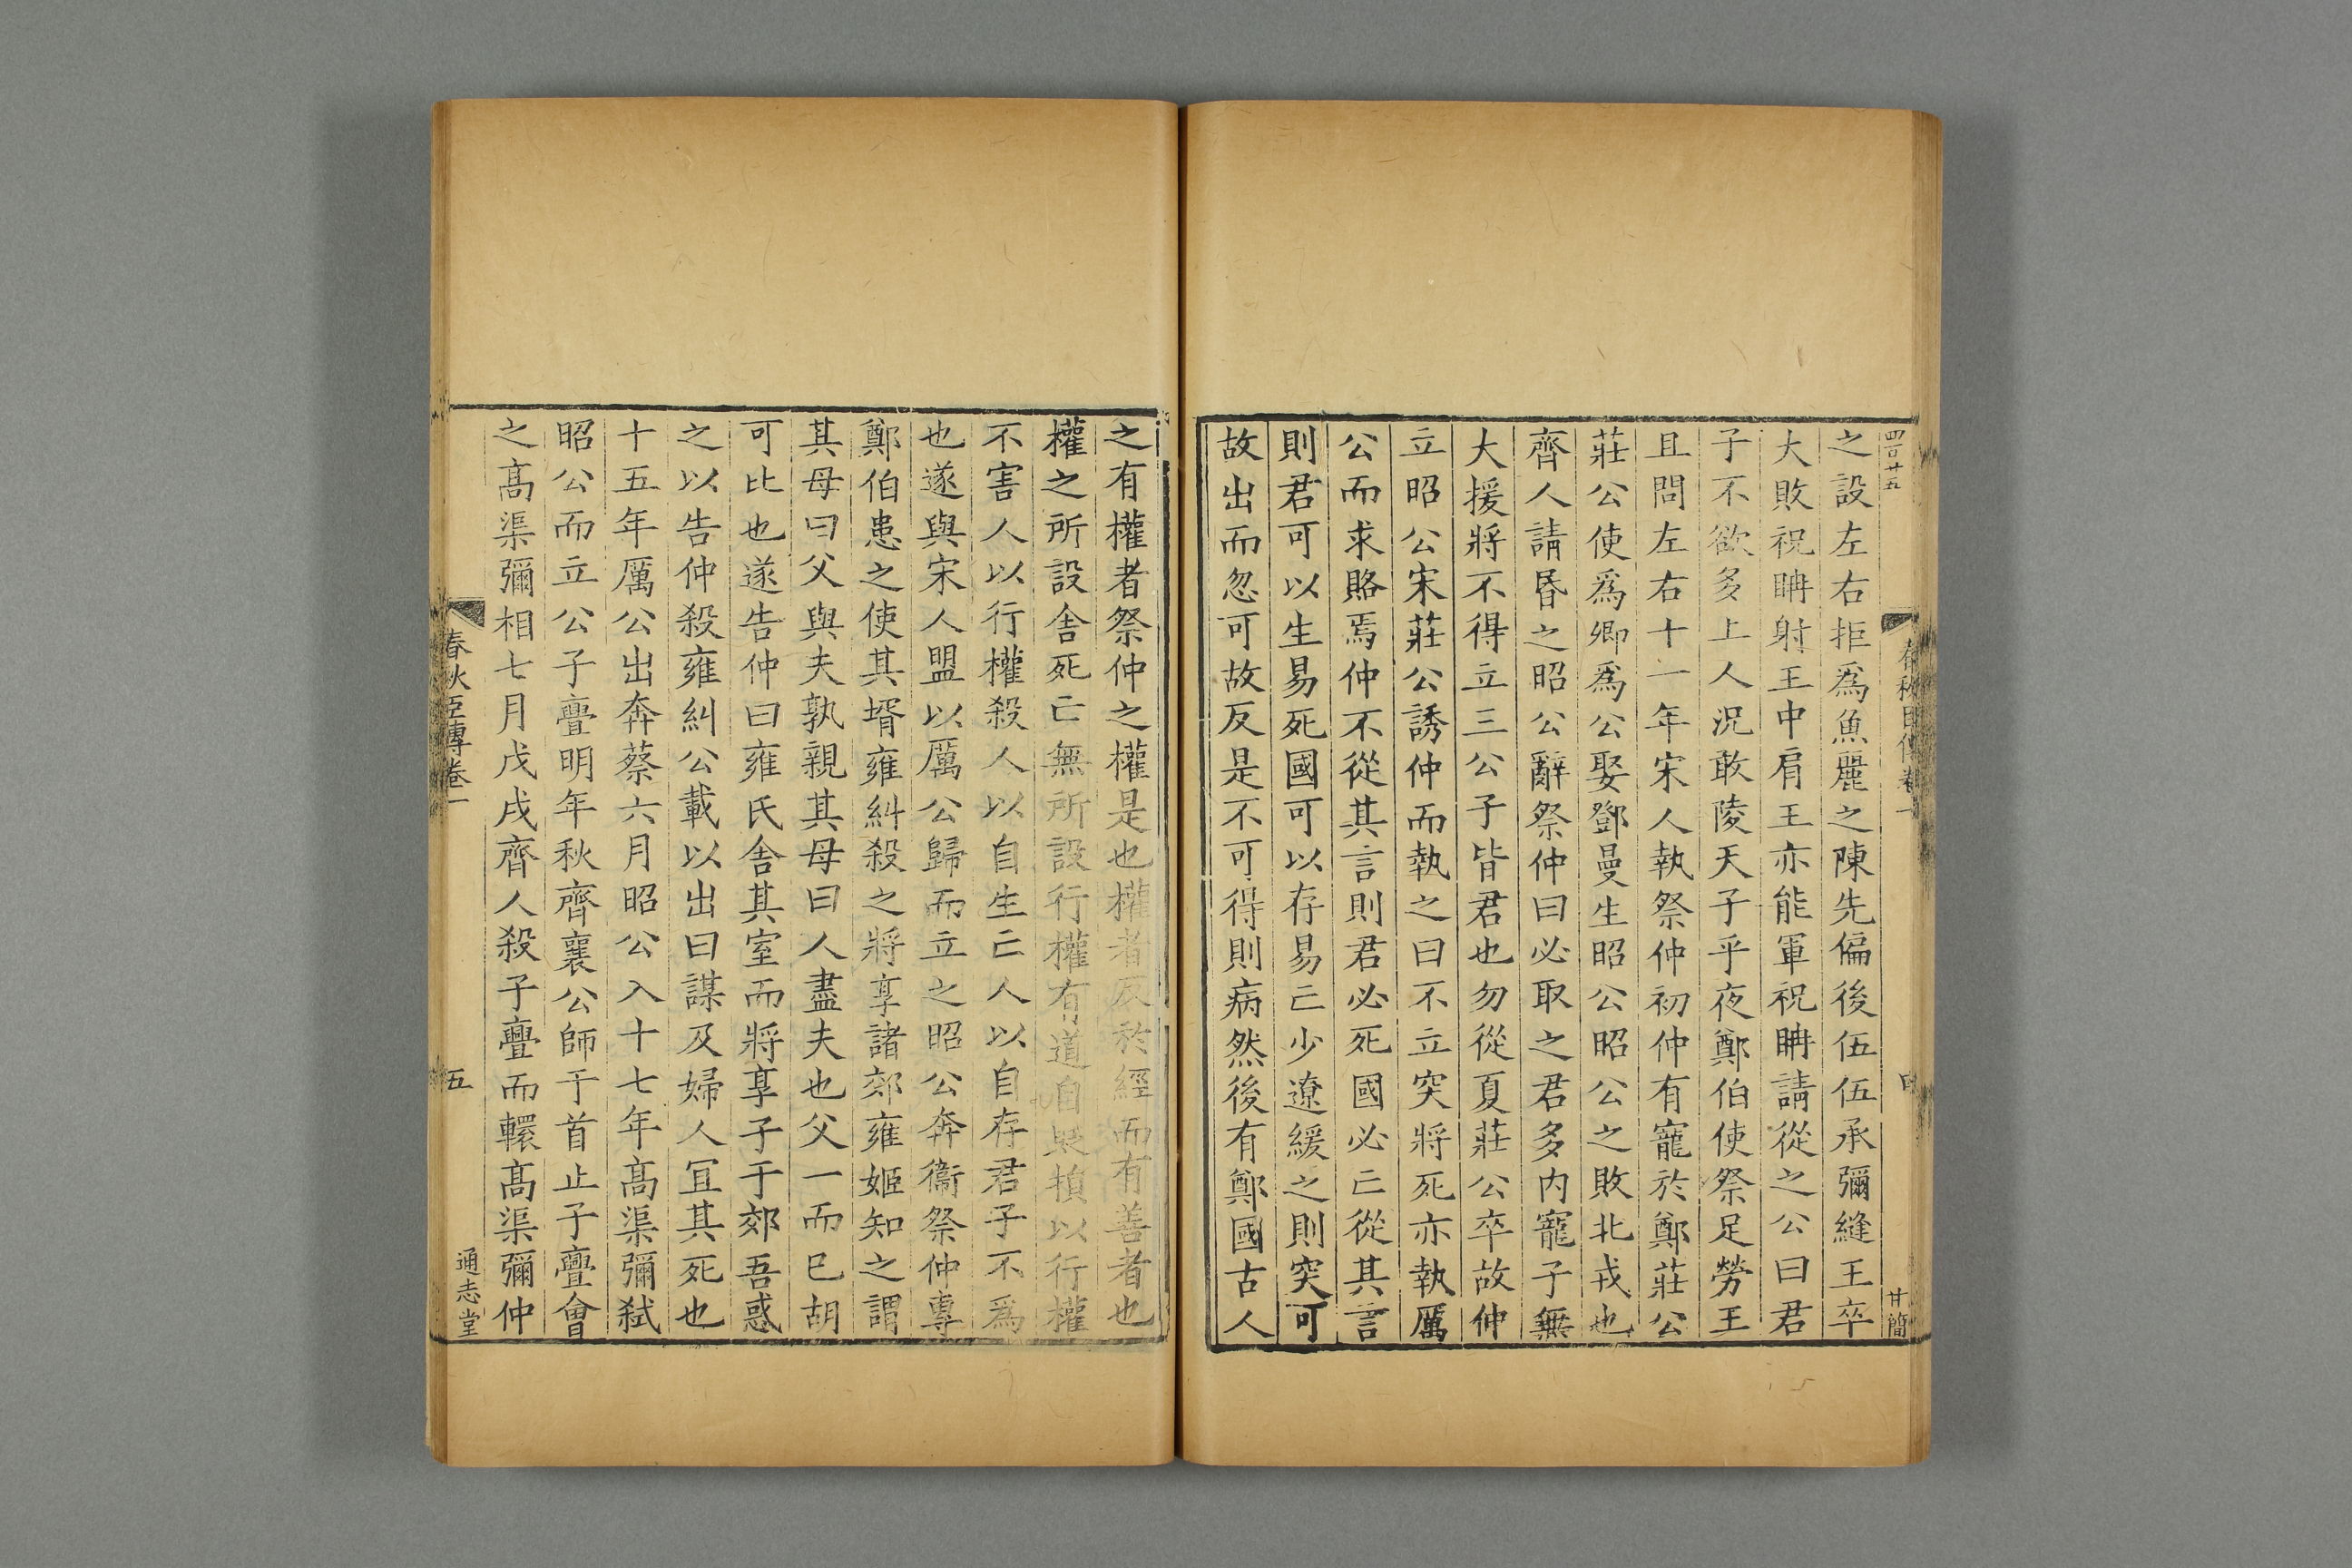 四百廿五
春秋臣傳卷一
廿簡
之設左右拒爲魚麗之陳先偏後伍伍承彌縫王卒
大敗祝聃射王中肩王亦能軍祝聃請從之公曰君
子不欲多上人況敢陵天子乎夜鄭伯使祭足勞王
且問左右十一年宋人執祭仲初仲有寵於鄭莊公
莊公使爲卿爲公娶鄧曼生昭公昭公之敗北戎也
齊人請昬之昭公辭祭仲曰必取之君多内寵子無
大援將不得立三公子皆君也勿從夏莊公卒故仲
立昭公宋莊公誘仲而執之曰不立突將死亦執厲
公而求賂焉仲不從其言則君必死國必亡從其言
則君可以生易死國可以存易亡少遼緩之則突可
故出而忽可故反是不可得則病然後有鄭國古人
之有權者祭仲之權是也權者反於經而有善者也
權之所設舍死亡無所設行權有道自貶損以行權
不害人以行權殺人以自生亡人以自存君子不爲
也遂與宋人盟以厲公歸而立之昭公奔衞祭仲專
鄭伯患之使其壻雍糾殺之將享諸郊雍姬知之謂
其母曰父與夫孰親其母曰人盡夫也父一而已胡
可比也遂告仲曰雍氏舍其室而將享子于郊吾惑
之以告仲殺雍糾公載以出曰謀及婦人冝其死也
十五年厲公出奔蔡六月昭公入十七年高渠彌弑
昭公而立公子亹明年秋齊襄公師于首止子亹會
之高渠彌相七月戊戌齊人殺子亹而轘高渠彌仲
春秋臣傳卷一
五
通志堂